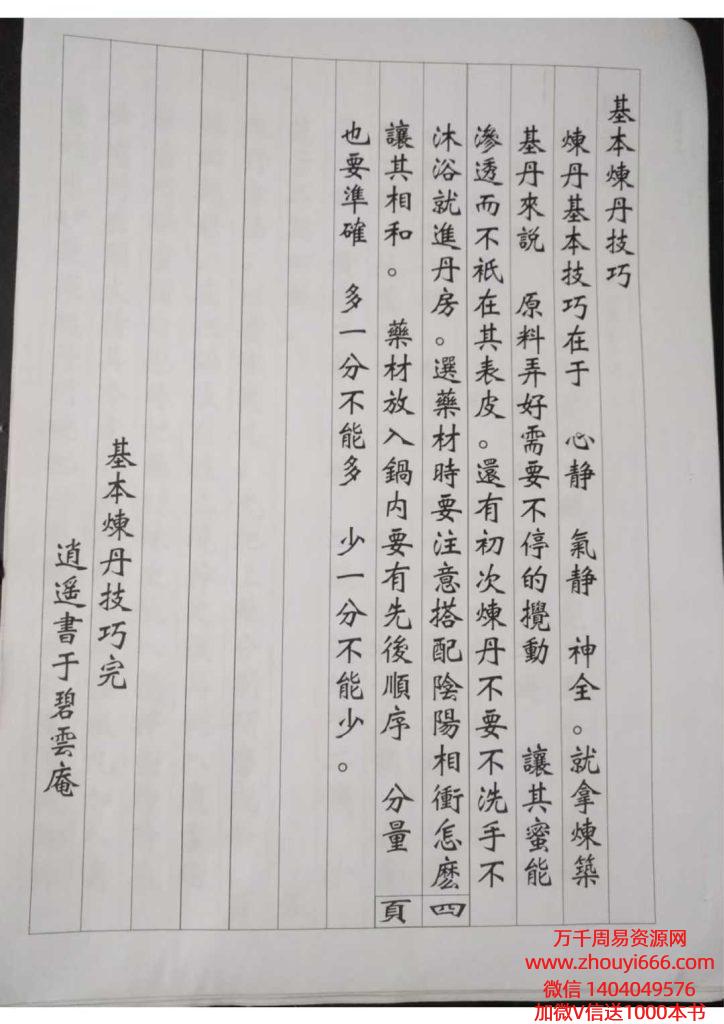 基本煉丹技巧
煉丹基本技巧在于 心静 氣静 神全。就拿煉築
基丹來説 原料弄好需要不停的攪動 讓其蜜能
滲透而不衹在其表皮。還有初次煉丹不要不洗手不
沐浴就進丹房。選藥材時要注意搭配陰陽相衝怎麽
讓其相和。 藥材放入鍋内要有先後順序 分量
也要準確 多一分不能多 少一分不能少。
基本煉丹技巧完
逍遥書于碧雲庵
四
頁
万千周易资源网
www.zhouyi666.com
微信 1404049576
加微V信送1000本书